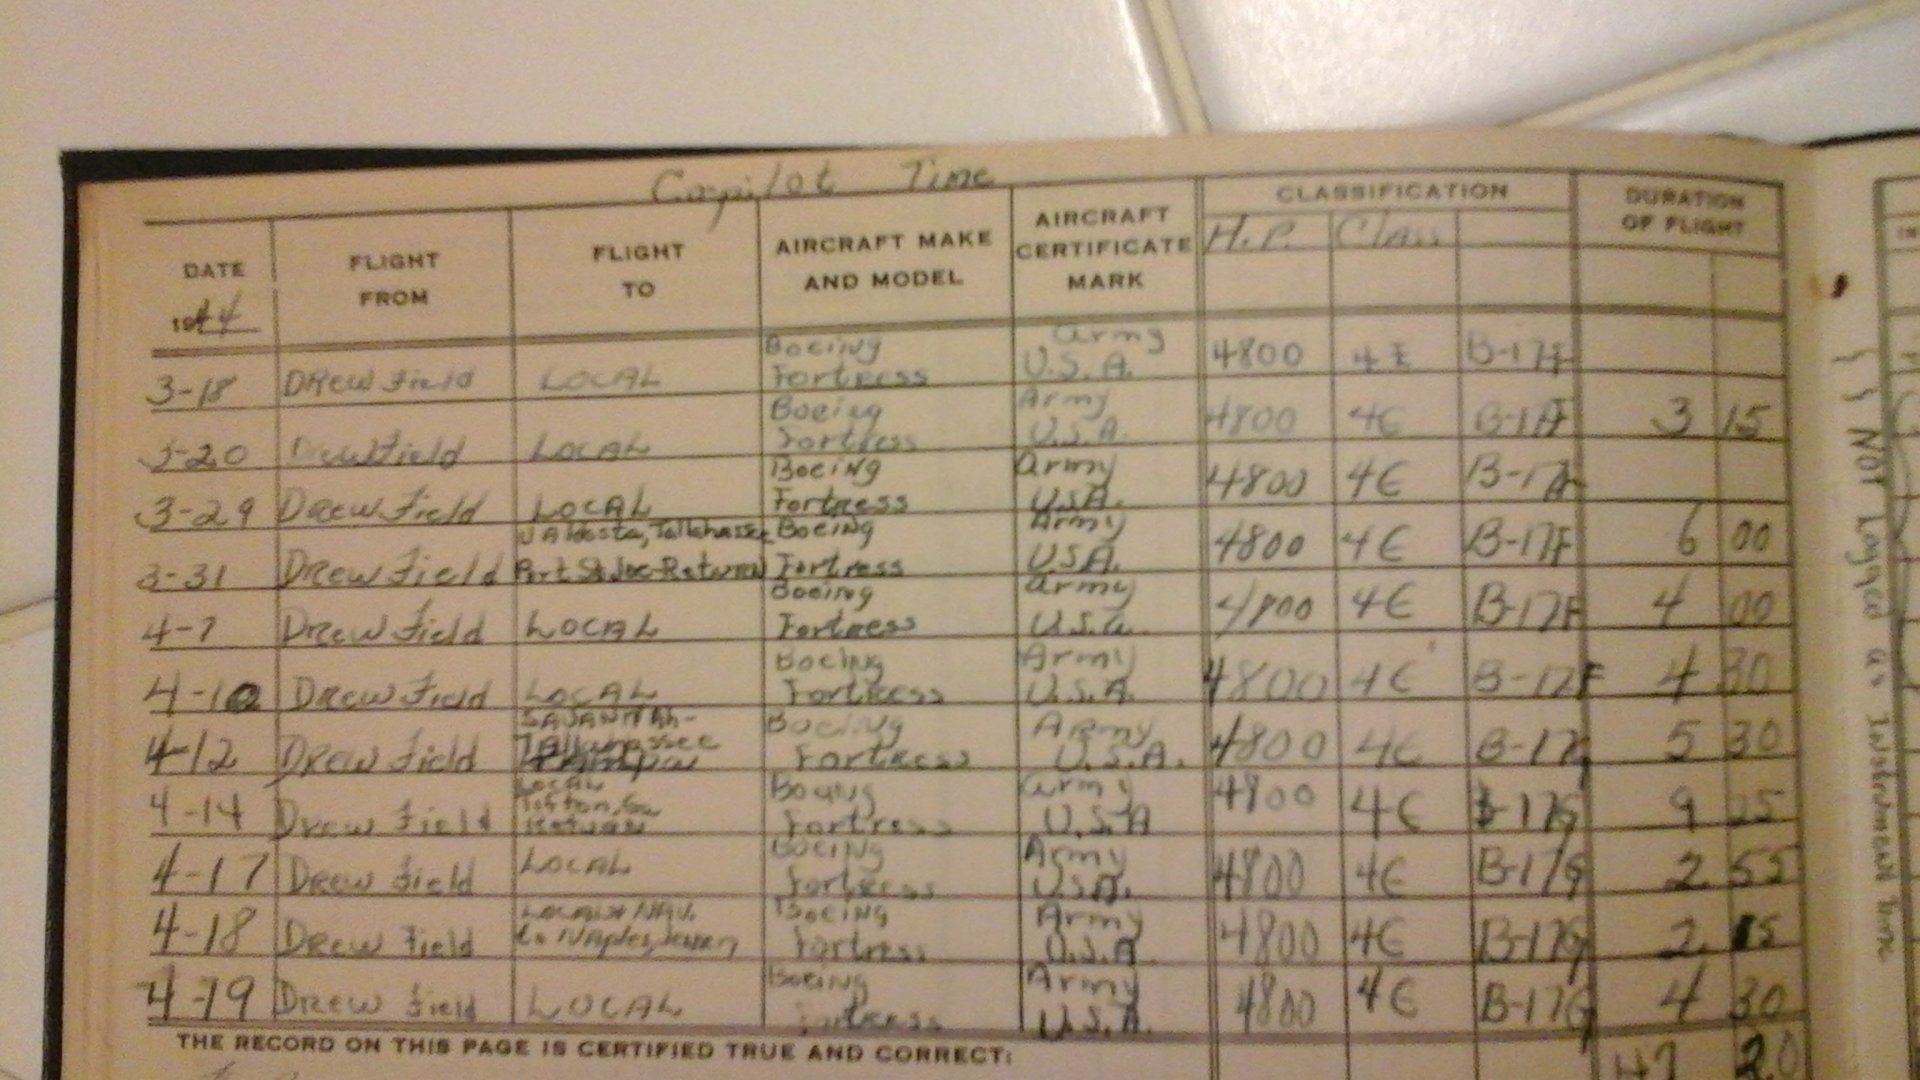 Copilot Time
DATE 1944 FLIGHT FROM FLIGHT TO AIRCRAFT MAKE AND MODEL AIRCRAFT CERTIFICATE MARK CLASSIFICATION H.P. Class DURATION OF FLIGHT
3-18 Drew Field LOCAL Boeing Fortress Army U.S.A. 4800 4E B-17F
3-20 Drew Field LOCAL Boeing Fortress Army U.S.A. 4800 4E B-17F 3 15
3-29 Drew Field LOCAL Boeing Fortress Army U.S.A. 4800 4E B-17F
3-31 Drew Field Valdosta, Tallahassee Port St Joe-Return Boeing Fortress Army U.S.A. 4800 4E B-17F 6 00
4-7 Drew Field LOCAL Boeing Fortress Army U.S.A. 4800 4E B-17F 4 00
4-10 Drew Field LOCAL Boeing Fortress Army U.S.A. 4800 4E B-17F 4 30
4-12 Drew Field SAVANNAh- Tallahassee Boeing Fortress Army U.S.A. 4800 4E B-17G 5 30
4-14 Drew Field Local Tifton, Ga Return Boeing Fortress Army U.S.A 4800 4E B-17G 9
4-17 Drew Field LOCAL Boeing Fortress Army U.S.A. 4800 4E B-17G 2 55
4-18 Drew Field Local & NAV. to Naples, Boeing Fortress Army U.S.A 4800 4E B-17G 2 15
4-19 Drew Field LOCAL Boeing Fortress Army U.S.A. 4800 4E B-17G 4 30
THE RECORD ON THIS PAGE IS CERTIFIED TRUE AND CORRECT: 47 20
Not Logged as Instrument Time